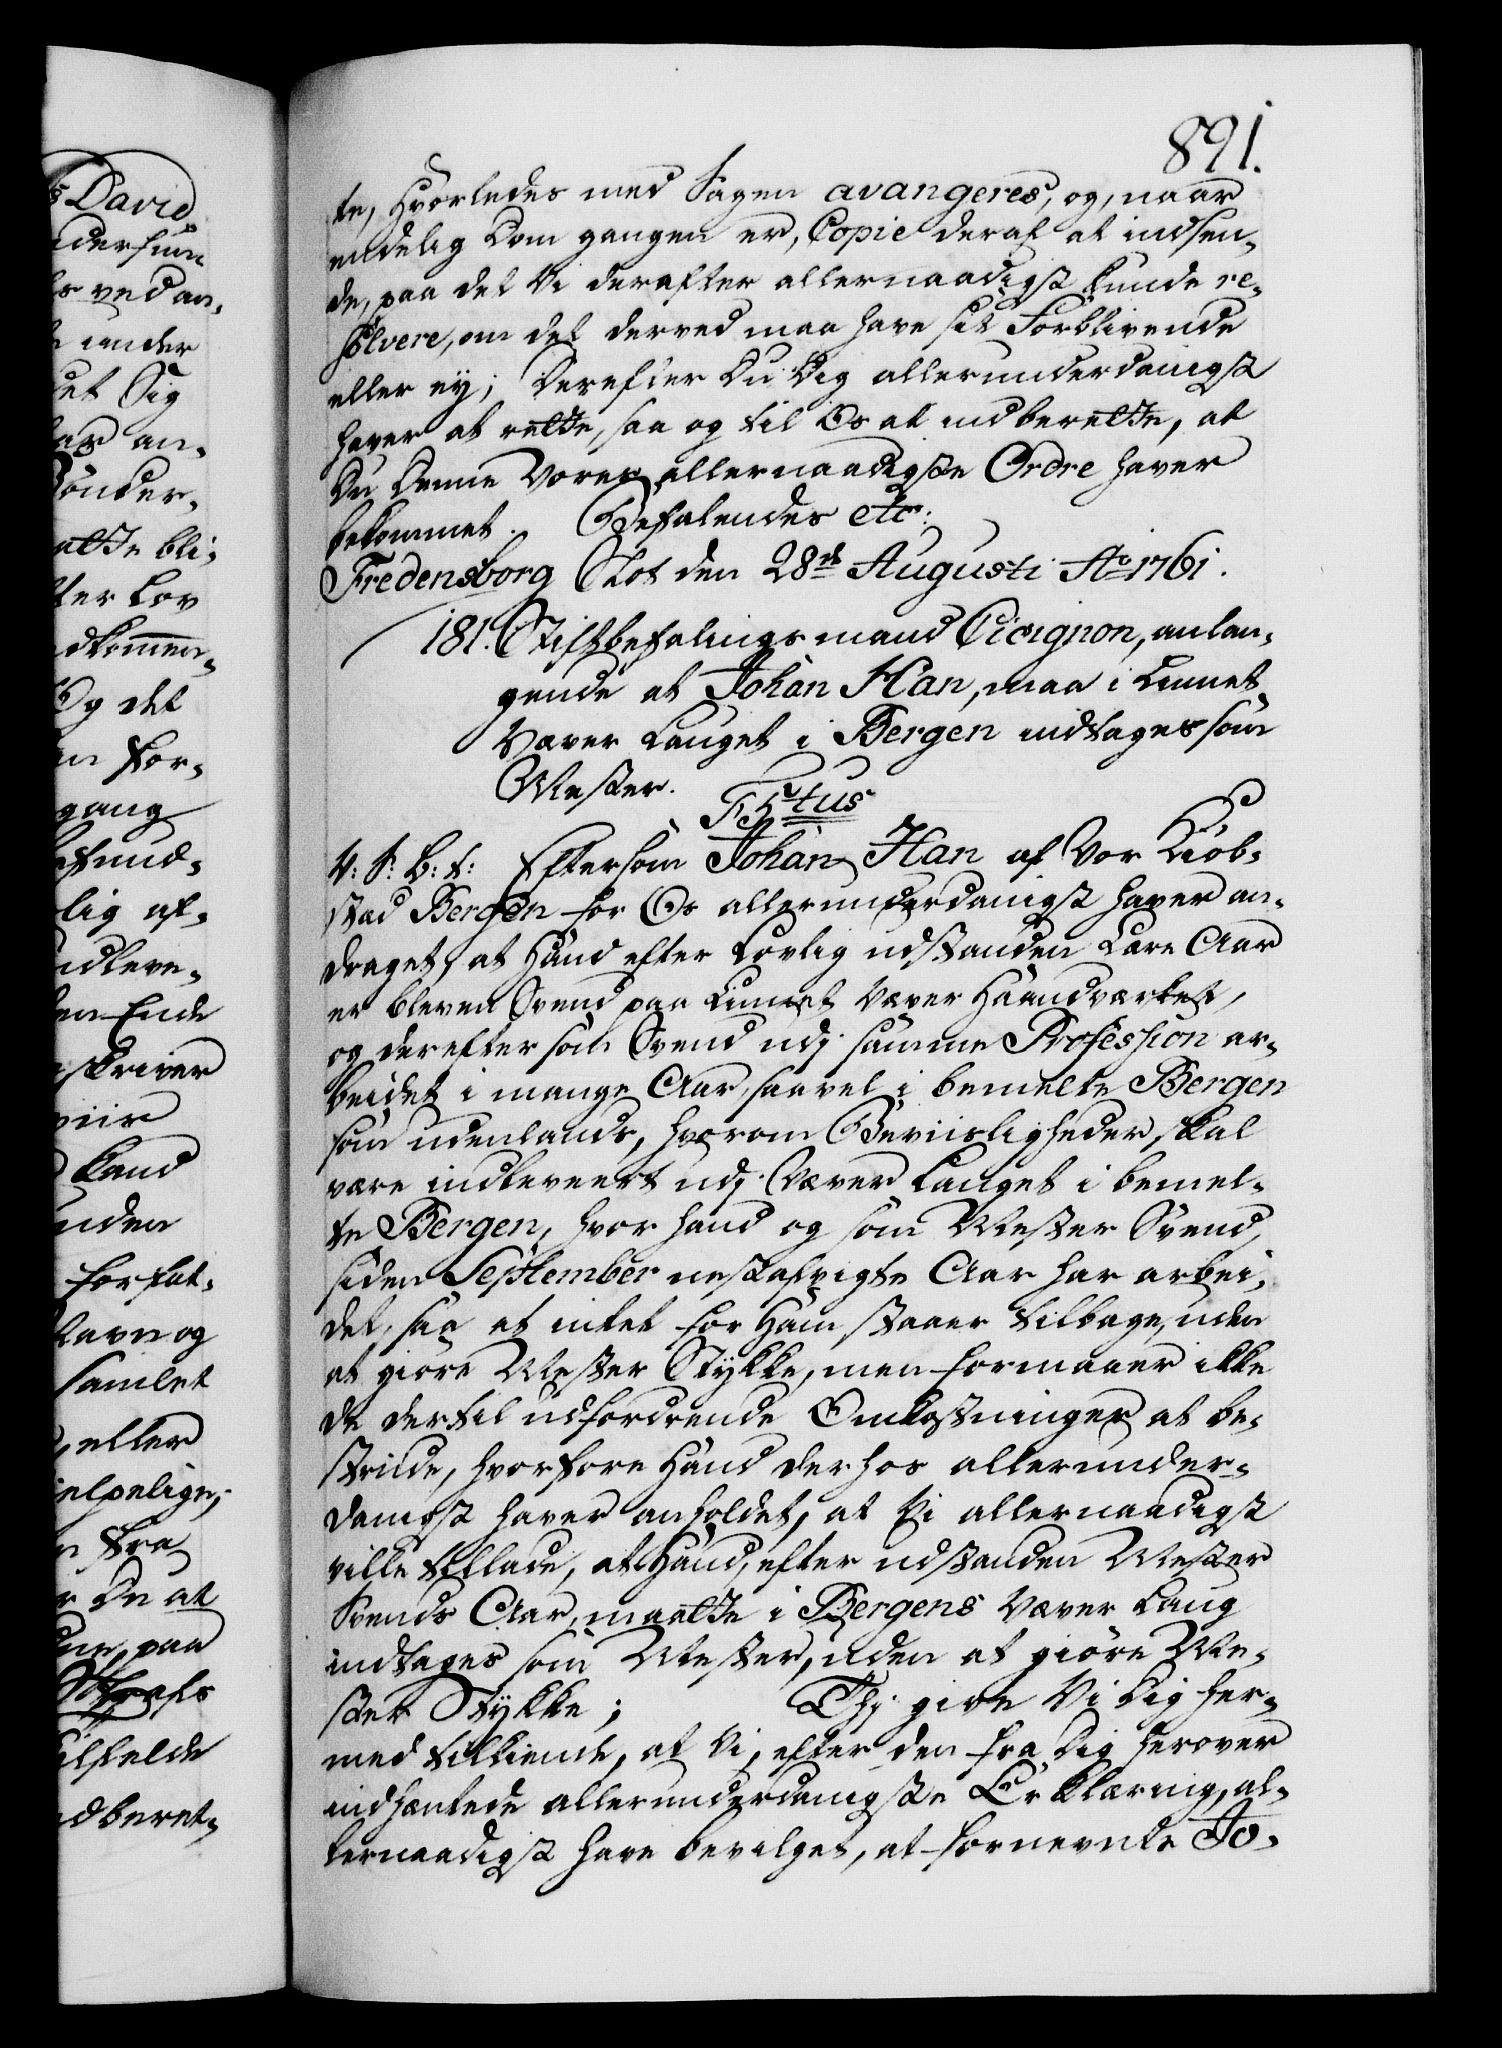 891.
te, hvorledes med Sagen avangeres, og, naar
endelig Dom gangen er, Copie deraf at indsen-
de, paa det Vi derefter allernaadigst kunde re-
solvere, om det derved maa have sit Forblivende
eller ey; Derefter Du Dig allerunderdanigst
haver at rette, saa og til Os at indberette, at
Du Denne Vores allernaadigste Ordre haver
bekommet. Befalendes etc:
Fredensborg Slot den 28de Augusti Ao 1761.
181. Stiftbefalingsmand Cicignon, anlan-
gende at Johan Han, maa i Linnet-
Væver Lauget i Bergen indtages som
Mester.
F5tus
V: S: B: T: Eftersom Johan Han af Vor Kiøb-
stad Bergen for Os allerunderdanigst haver an-
draget, at Hand efter lovlig udstanden Lære Aar
er bleven Svend paa Linnet Væver Haandværket,
og derefter som Svend udj samme Profession ar-
beidet i mange Aar, saavel i bemelte Bergen
som udenlands, hvorom Beviisligheder skal
være indleveert udj Væver Lauget i bemel-
te Bergen, hvor hand og som Mester Svend,
siden September nestafvigte Aar har arbei-
det, saa at intet for Ham staaer tilbage, uden
at giøre Mester Stykke, men formaaer ikke
de dertil udfordrende Omkostninger at be-
stride, hvorfore Hand derhos allerunder-
danigst haver anholdet, at Vi allernaadigst
ville tillade, at Hand, efter udstanden Mester
Svends Aar, maatte i Bergens Væver Laug
indtages som Mester, uden at giøre Me-
ster Stykke; Thj give Vi Dig her-
med tilkiende, at Vi, efter den fra Dig herover
indhentede allerunderdanigste Erklæring, al-
lernaadigst have bevilget, at fornevnte Jo-